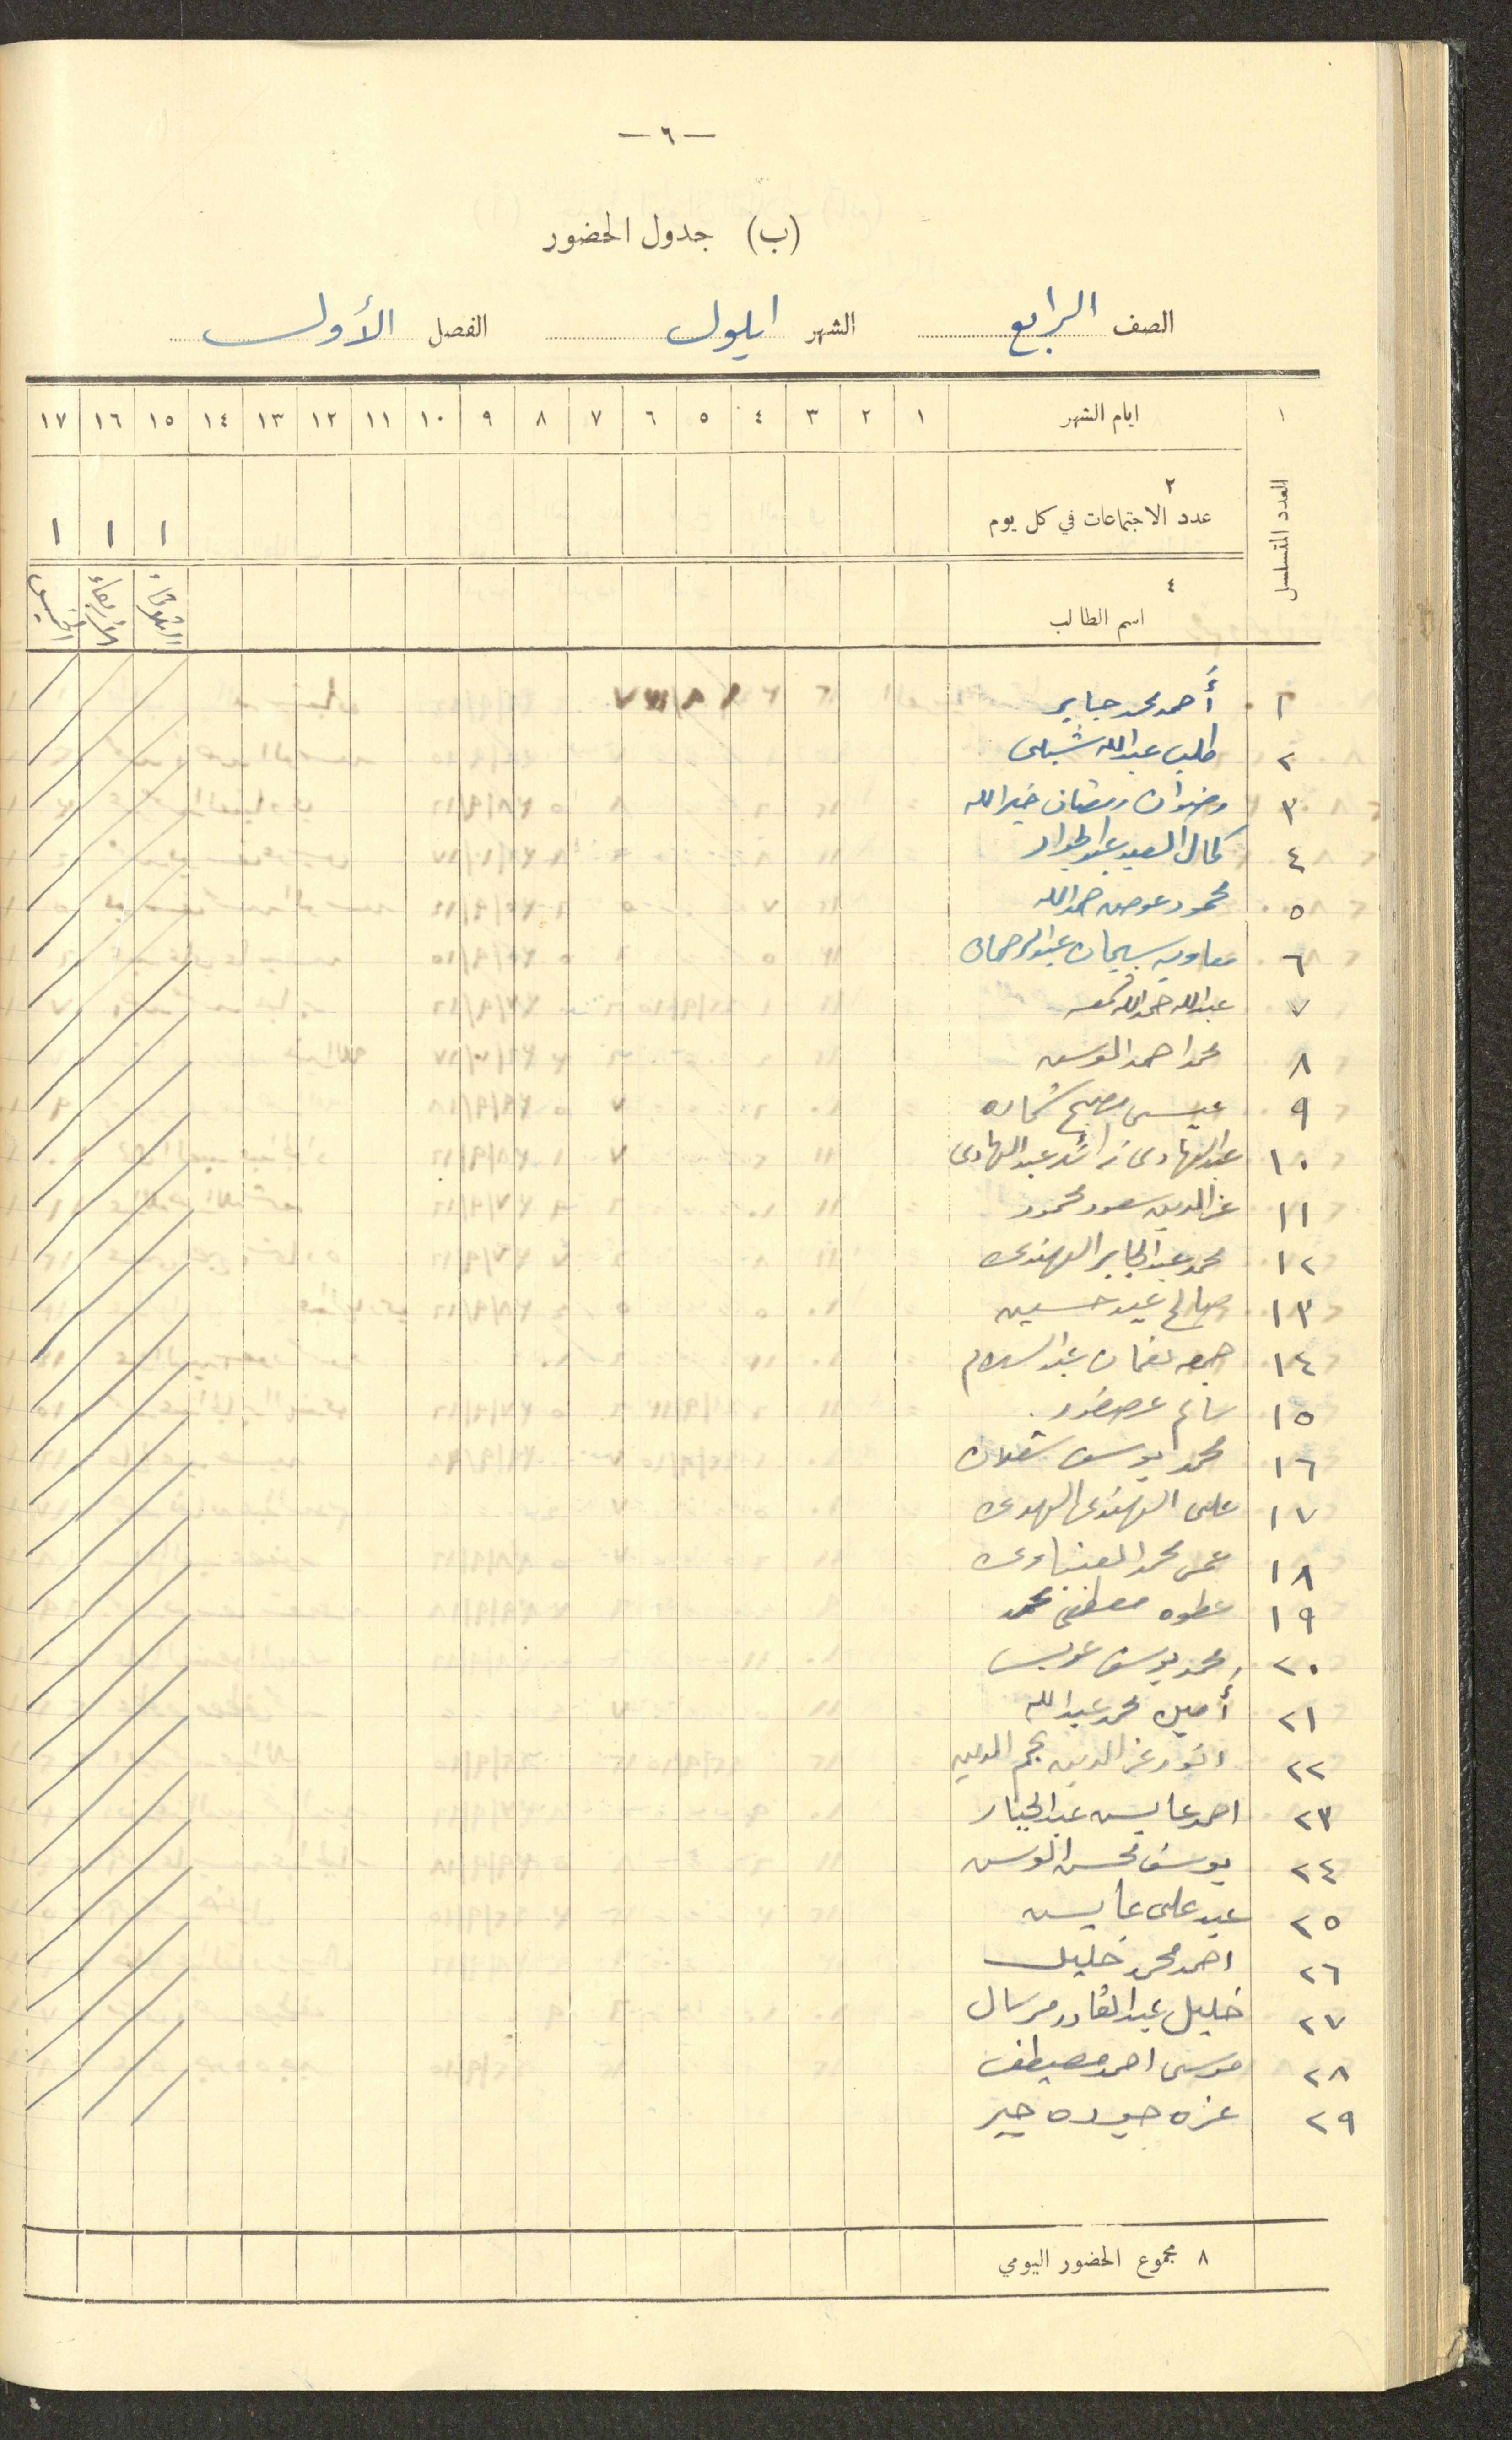 — ٦ —
(ب) جدول الحضور
الصف الرابع الشهر ايلول الفصل الأول
١ ايام الشهر ١ ٢ ٣ ٤ ٥ ٦ ٧ ٨ ٩ ١٠ ١١ ١٢ ١٣ ١٤ ١٥ ١٦ ١٧
العدد المتسلسل
٢
عدد الاجتماعات في كل يوم ١ ١ ١
٤
اسم الطالب الثلاثاء الأربعاء الخميس
١ أحمد محمد جابر
٢ طلب عبدالله شبلى
٣ رضوان رمضان خيرالله
٤ كمال السعيد عبد الجواد
٥ محمود عوض حمدالله
٦ معاويه سليمان عبدالرحمان
٧ عبدالله حمدالله
٨ محمد احمد
٩ عيسى مصبح شحاده
١٠ عبدالهادى راشد عبدالهادى
١١ عزالدين سعود محمود
١٢ محمد عبدالجابر الهندى
١٣ صالح عيد حسين
١٤ جمعه نعمان عبدالسلام
١٥ سالم
١٦ محمد يوسف شعلان
١٧ على الهندى
١٨ عمر محمد
١٩ عطوه مصطفى محمد
٢٠ محمد يوسف
٢١ أمين محمد عبدالله
٢٢ انور عزالدين نجم الدين
٢٣ احمد عايش عبدالجبار
٢٤ يوسف محسن
٢٥ عيد على عايش
٢٦ احمد محمد خليل
٢٧ خليل عبدالقادر مرسال
٢٨ موسى احمد مصطفى
٢٩ عزه جبر
٨ مجموع الحضور اليومي